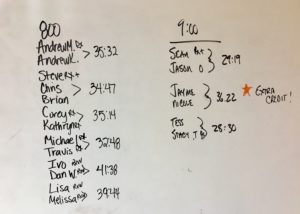 8:00
Andrew M. Rx
Andrew K.
35:32
Steve Rx+
Chris
Brian
34:47
Corey Rx
Kathryn Rx
35:14
Michael Rx
Travis Rx
32:48
Ivo RxW
Dan W. Rx
41:38
Lisa RxW
Melissa RxW
39:44
9:00
Sean Rx+
Jason O
29:19
Jayme
Nicole
36:22
EXTRA
CREDIT!
Tess
28:30